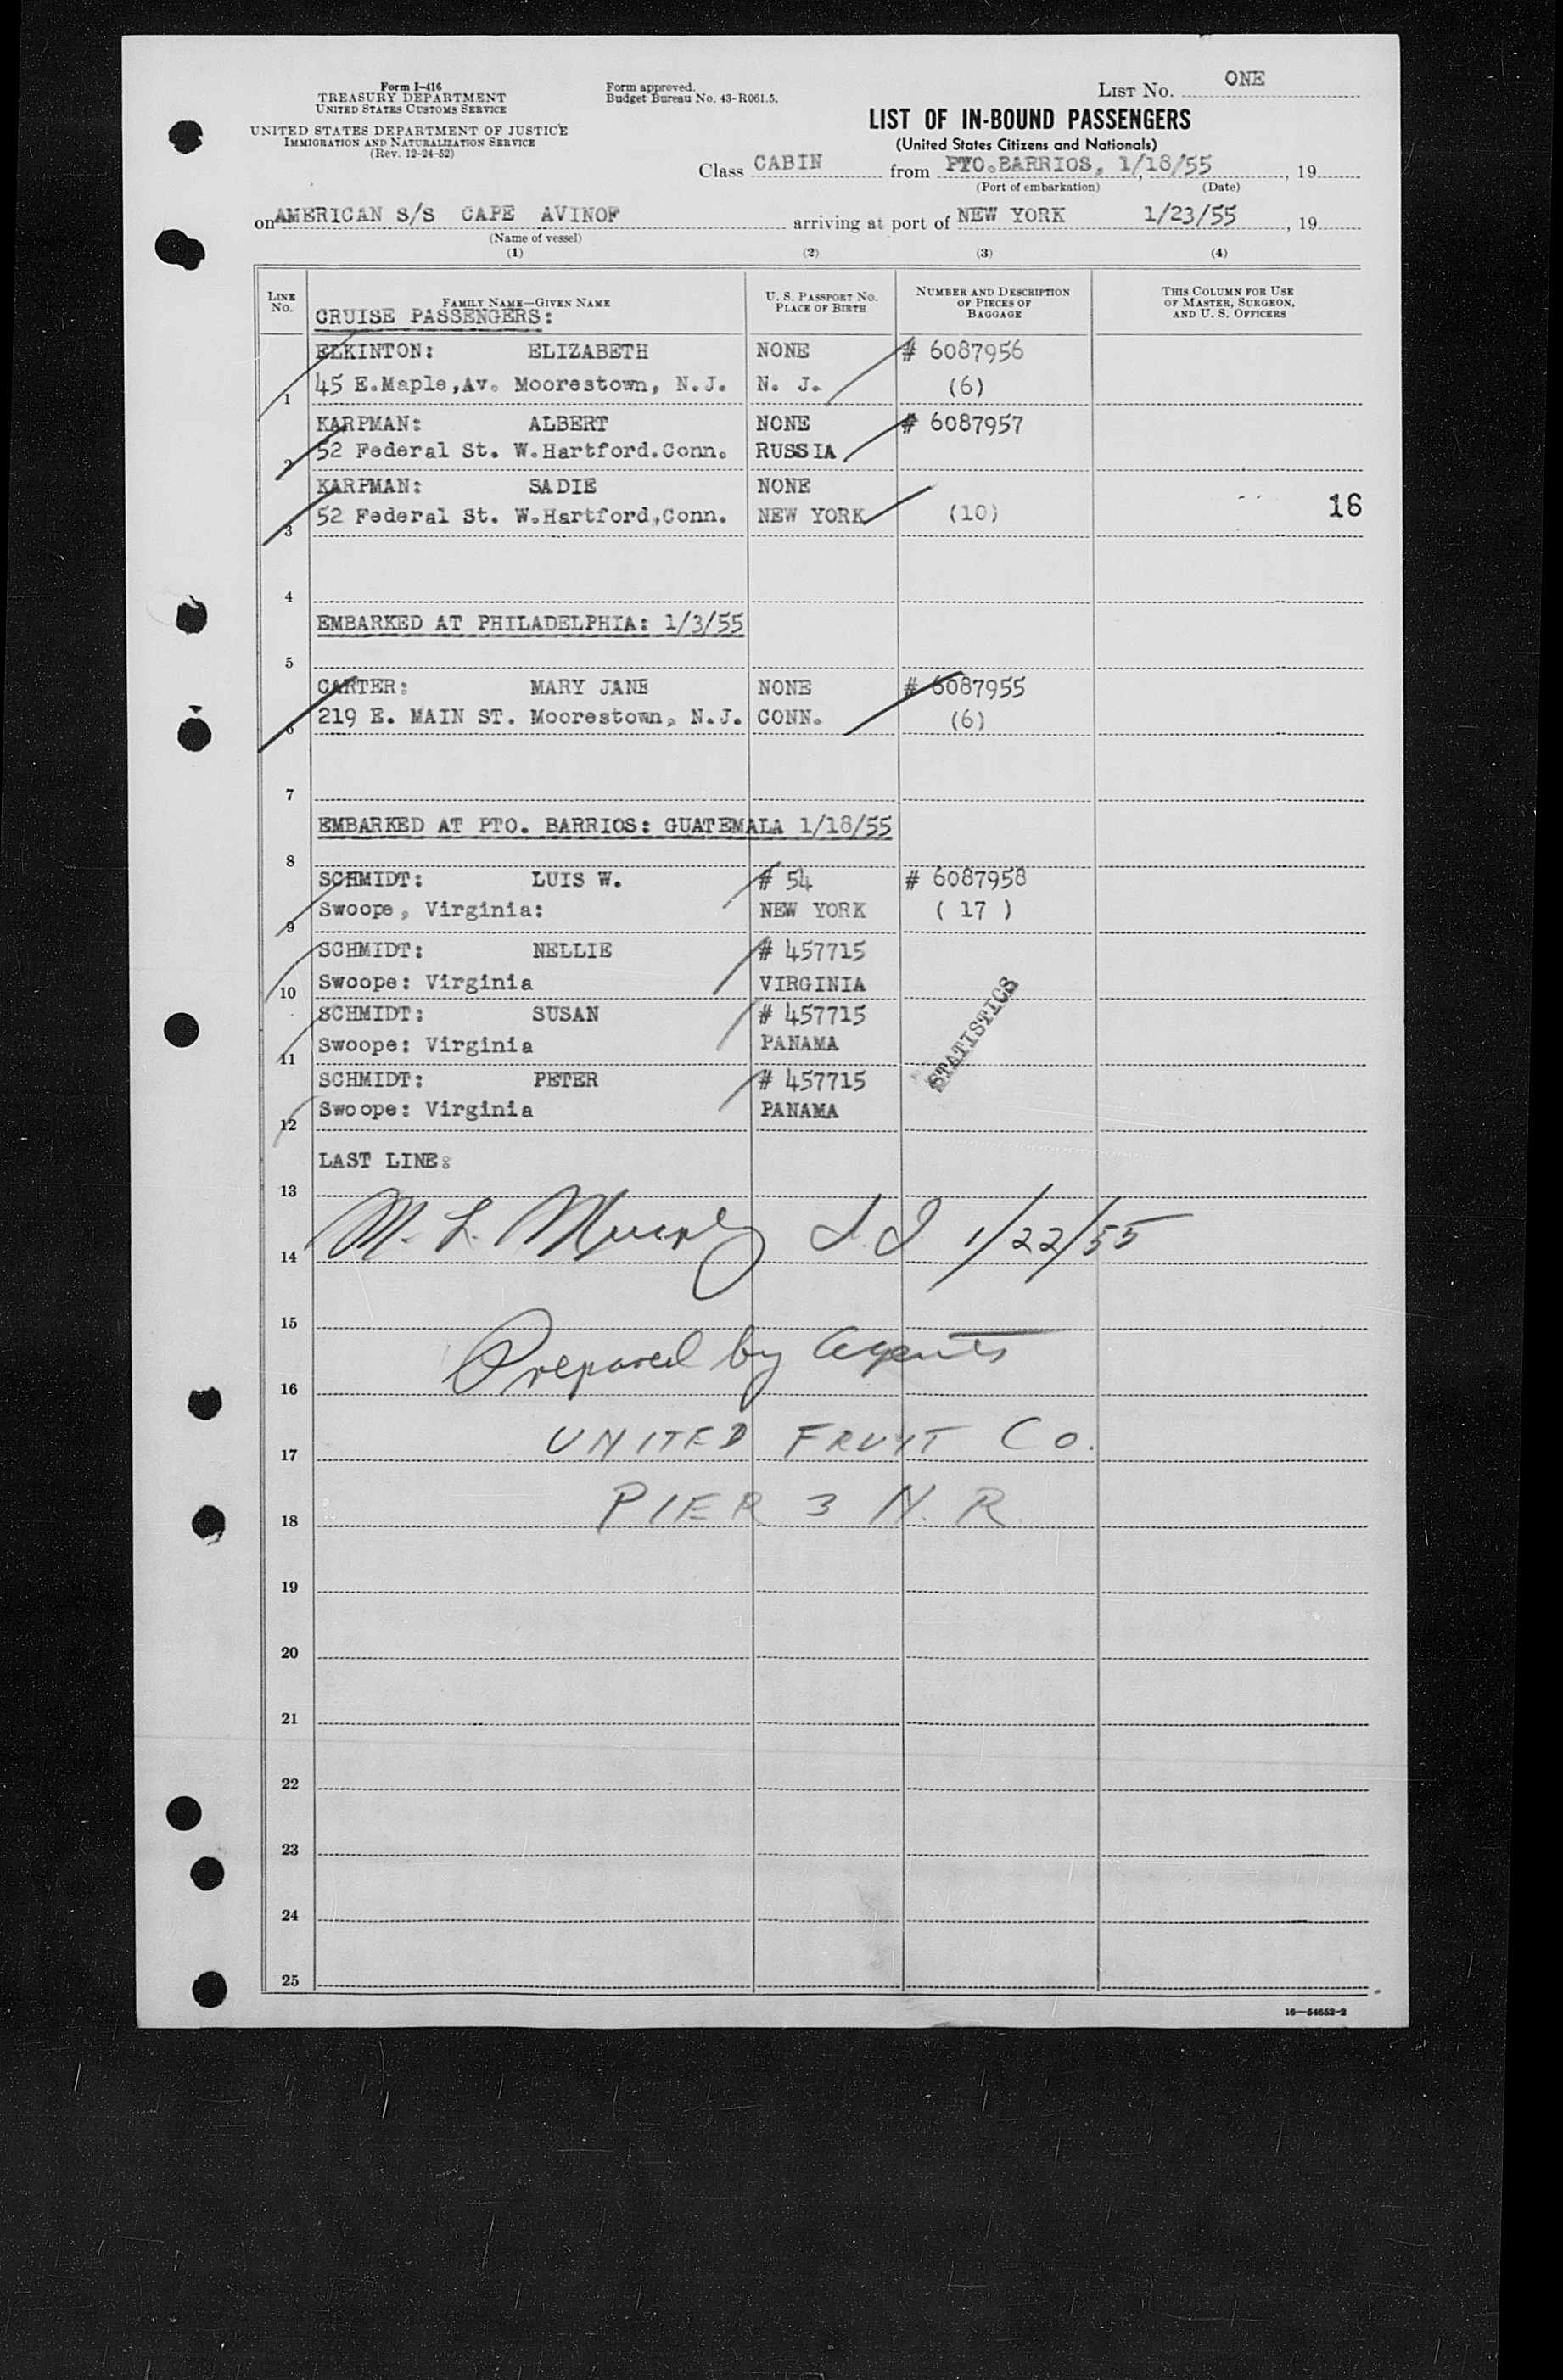 Form I-416
TREASURY DEPARTMENT
UNITED STATES CUSTOMS SERVICE
UNITED STATES DEPARTMENT OF JUSTICE
IMMIGRATION AND NATURALIZATION SERVICE
(Rev. 12-24-52)
Form approved.
Budget Bureau No. 43-R061.5.
LIST No. ONE
LIST OF IN-BOUND PASSENGERS
(United States Citizens and Nationals)
Class CABIN from PTO.BARRIOS, 1/18/55, 19
(Port of embarkation) (Date)
on AMERICAN S/S CAPE AVINOF arriving at port of NEW YORK 1/23/55, 19
(Name of vessel)
(1) (2) (3) (4)
LINE No. FAMILY NAME—GIVEN NAME U. S. PASSPORT NO. PLACE OF BIRTH NUMBER AND DESCRIPTION OF PIECES OF BAGGAGE THIS COLUMN FOR USE OF MASTER, SURGEON, AND U. S. OFFICERS
CRUISE PASSENGERS:
ELKINTON: ELIZABETH NONE # 6087956
1 45 E.Maple,Av. Moorestown, N.J. N. J. (6)
KARPMAN: ALBERT NONE # 6087957
2 52 Federal St. W.Hartford.Conn. RUSSIA
KARPMAN: SADIE NONE
3 52 Federal St. W.Hartford,Conn. NEW YORK (10) 16
4
EMBARKED AT PHILADELPHIA: 1/3/55
5
CARTER: MARY JANE NONE # 6087955
6 219 E. MAIN ST. Moorestown, N.J. CONN. (6)
7
EMBARKED AT PTO. BARRIOS: GUATEMALA 1/18/55
8
SCHMIDT: LUIS W. # 54 # 6087958
9 Swoope, Virginia: NEW YORK ( 17 )
SCHMIDT: NELLIE # 457715
10 Swoope: Virginia VIRGINIA
SCHMIDT: SUSAN # 457715
11 Swoope: Virginia PANAMA
STATISTICS
SCHMIDT: PETER # 457715
12 Swoope: Virginia PANAMA
LAST LINE:
13
14 M. L. Murphy 1/22/55
15
Prepared by Agents
16
17 UNITED FRUIT Co.
18 PIER 3 N. R.
19
20
21
22
23
24
25
16—54652-2